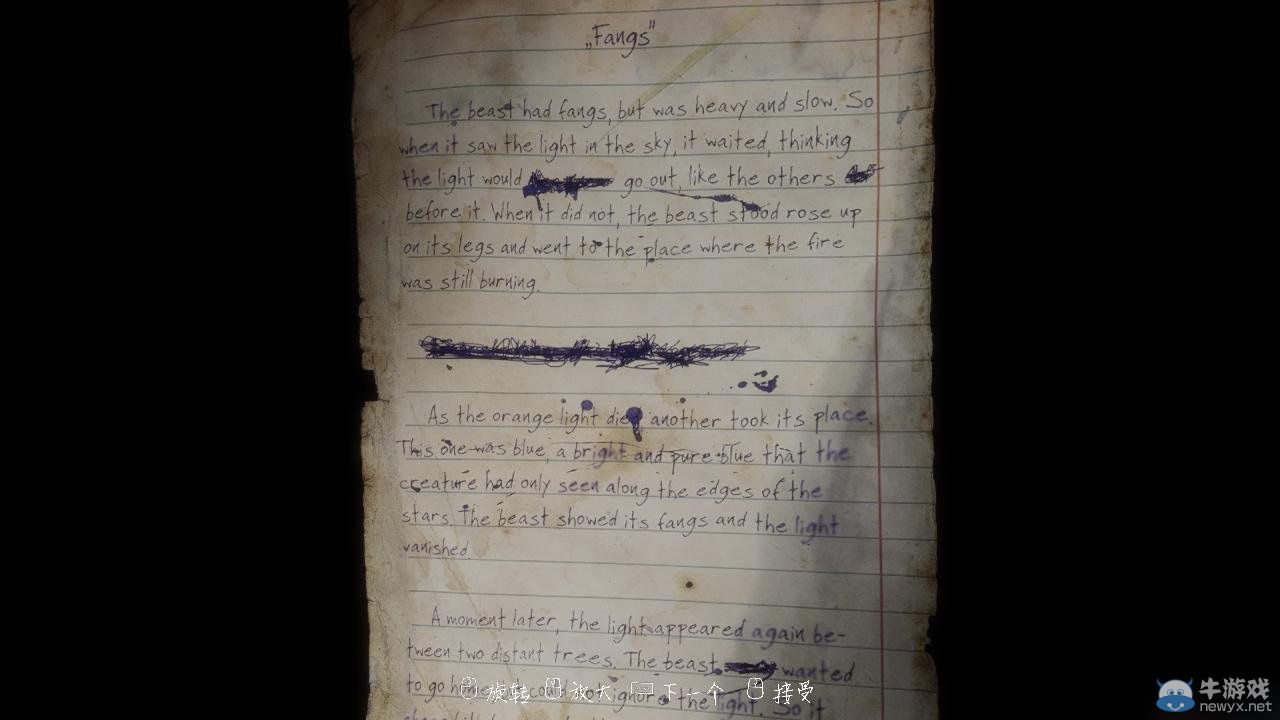 „Fangs"
The beast had fangs, but was heavy and slow. So
when it saw the light in the sky, it waited, thinking
the light would go out, like the others
before it. When it did not, the beast stood rose up
on its legs and went to the place where the fire
was still burning.
As the orange light died another took its place.
This one was blue, a bright and pure blue that the
creature had only seen along the edges of the
stars. The beast showed its fangs and the light
vanished.
A moment later, the light appeared again be-
tween two distant trees. The beast wanted
to go the light. So it
旋转 放大 下一个 接受
牛游戏
newyx.net